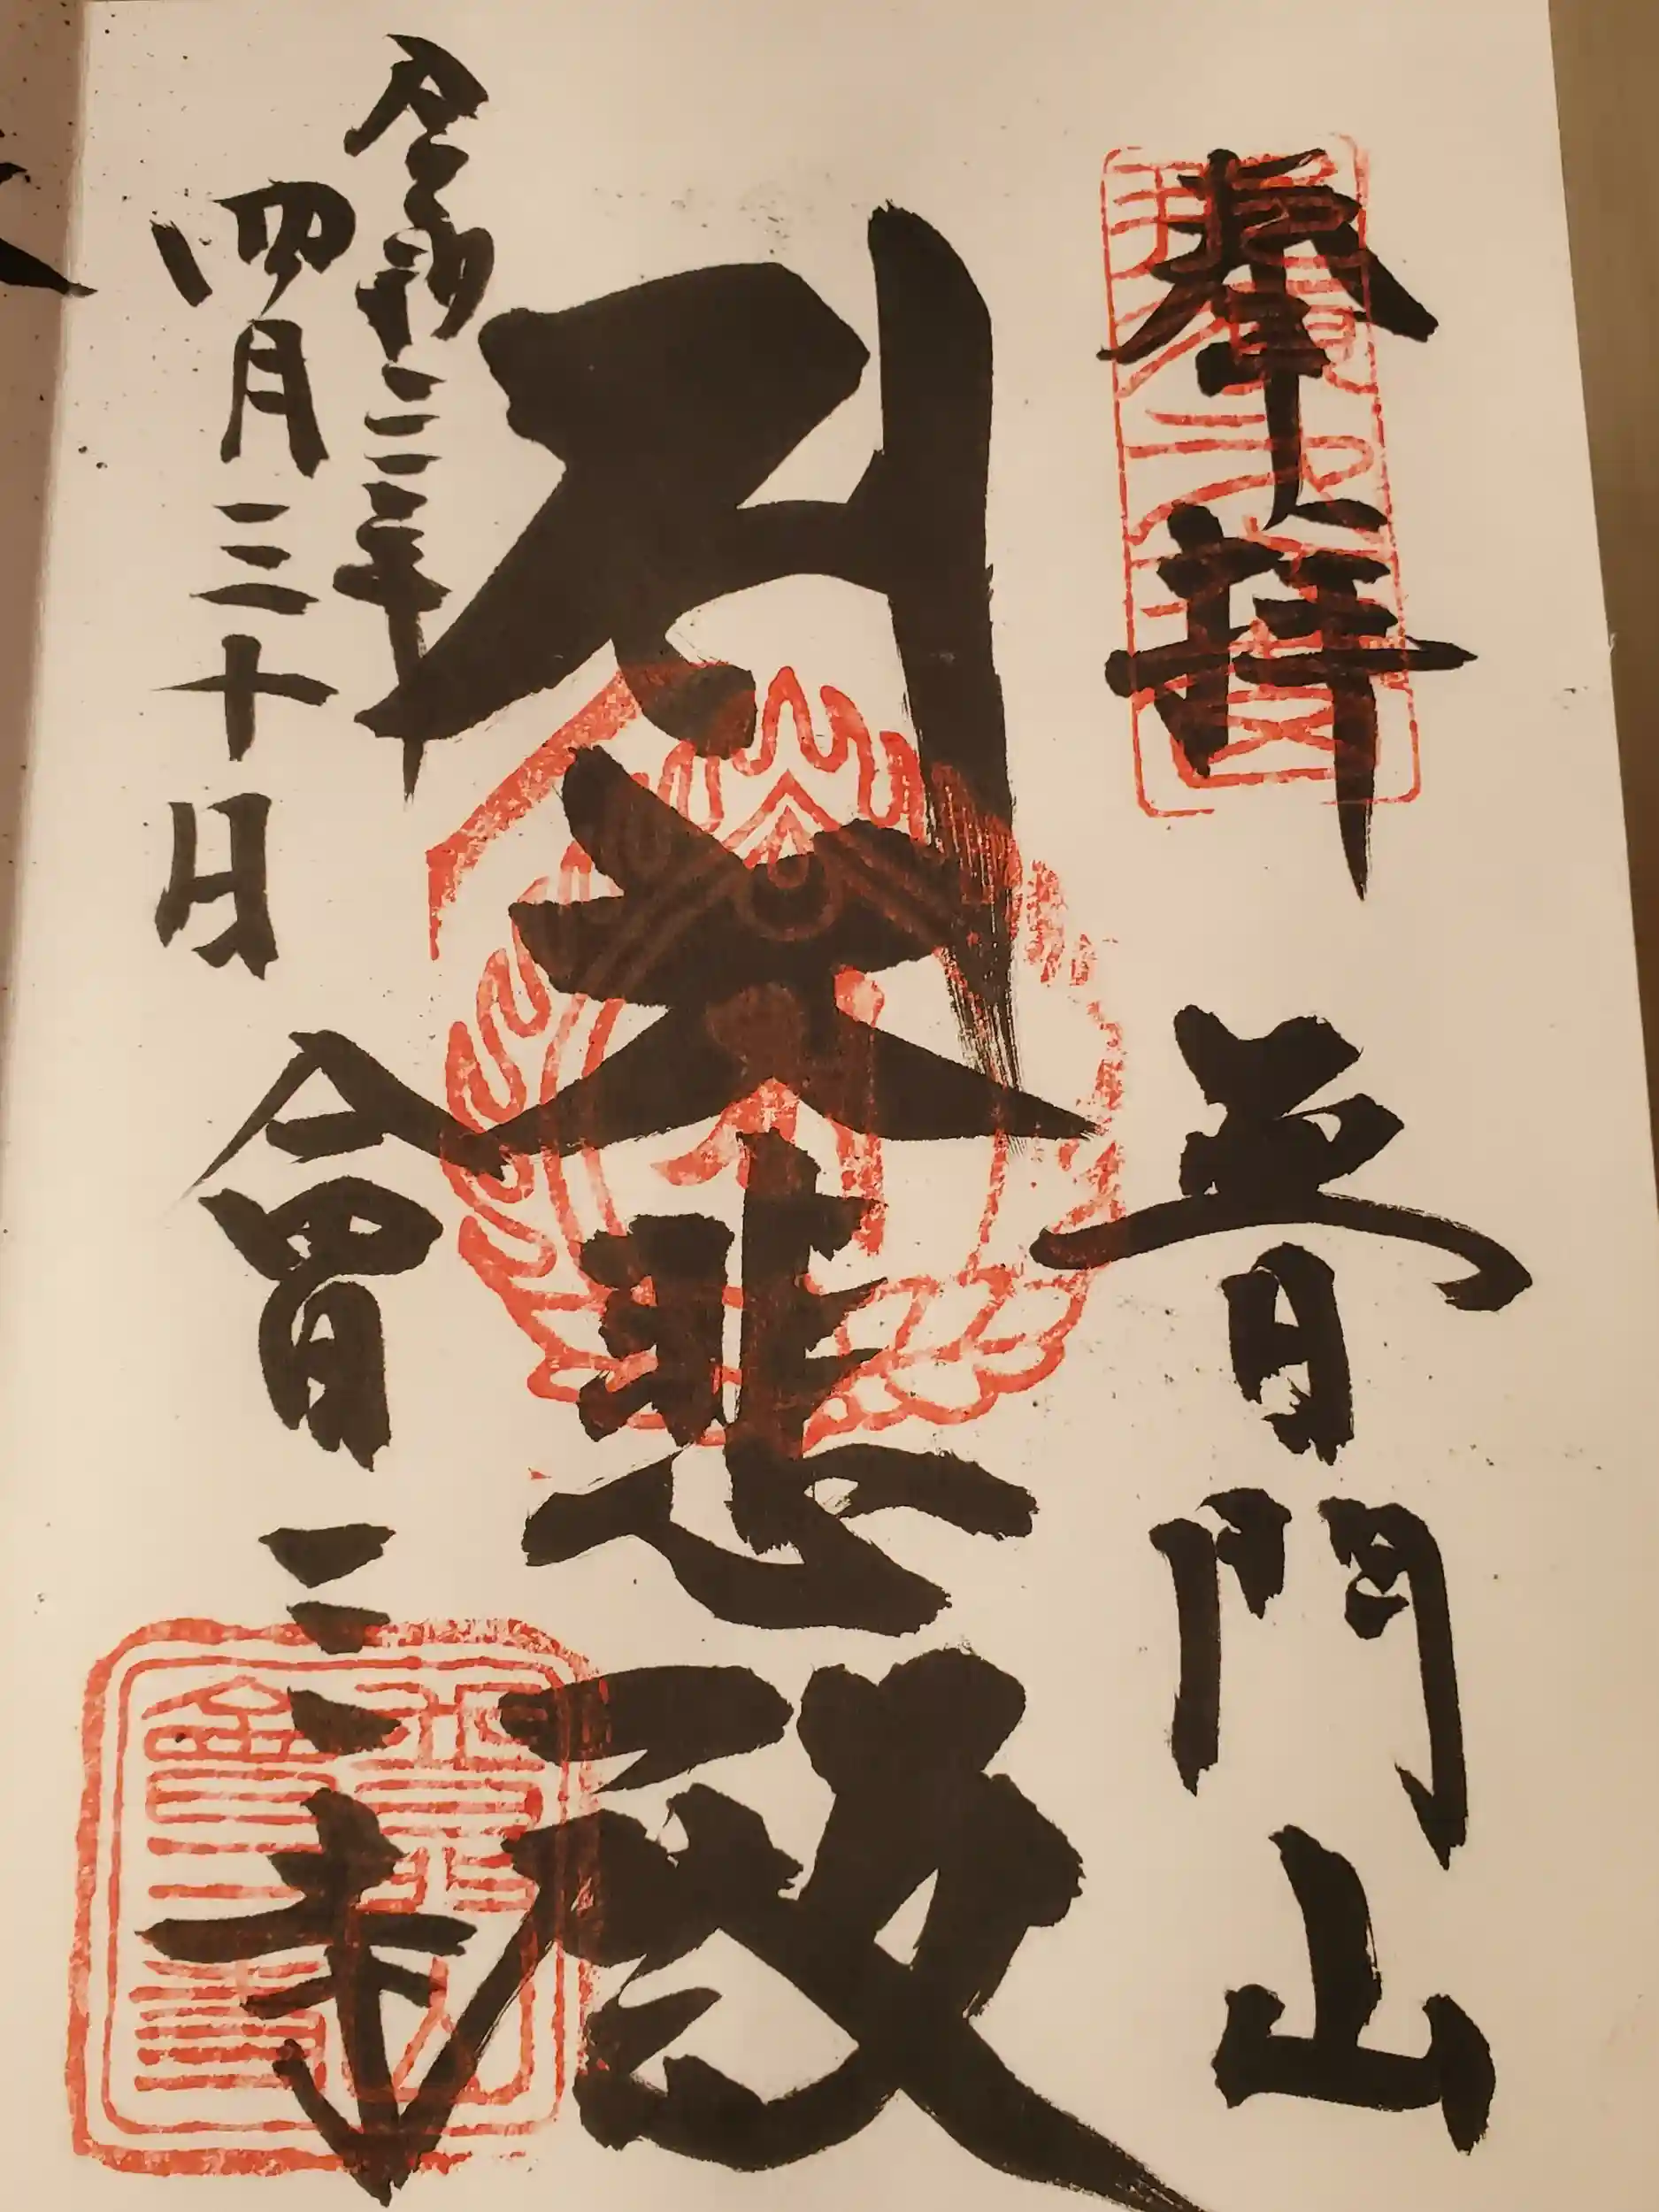 奉拝　普門山
大悲殿
令和三年
四月三十日　會三寺